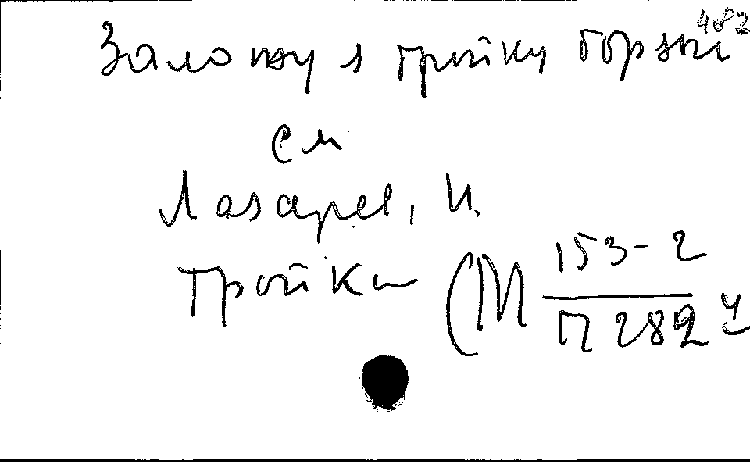 482
Заложу я тройку борзых
см
Лазарев, И
Тройка (М 153-2
П 282 4